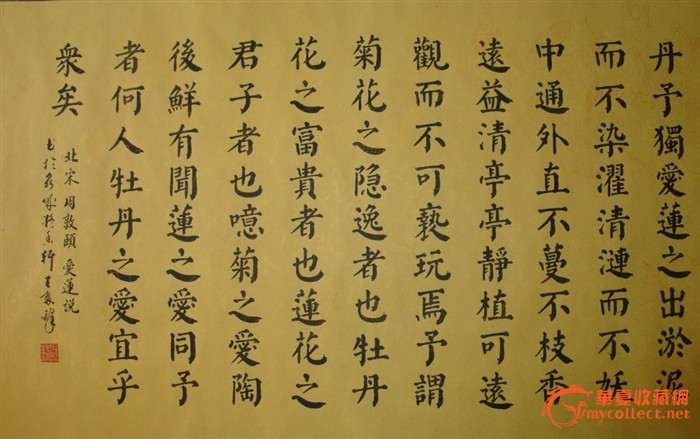 丹予獨愛蓮之出淤泥
而不染濯清漣而不妖
中通外直不蔓不枝香
遠益清亭亭靜植可遠
觀而不可褻玩焉予謂
菊花之隐逸者也牡丹
花之富貴者也蓮花之
君子者也噫菊之愛陶
後鮮有聞蓮之愛同予
者何人牡丹之愛宜乎
衆矣
北宋 周敦頤 愛蓮説
華夏收藏網
mycollect.net